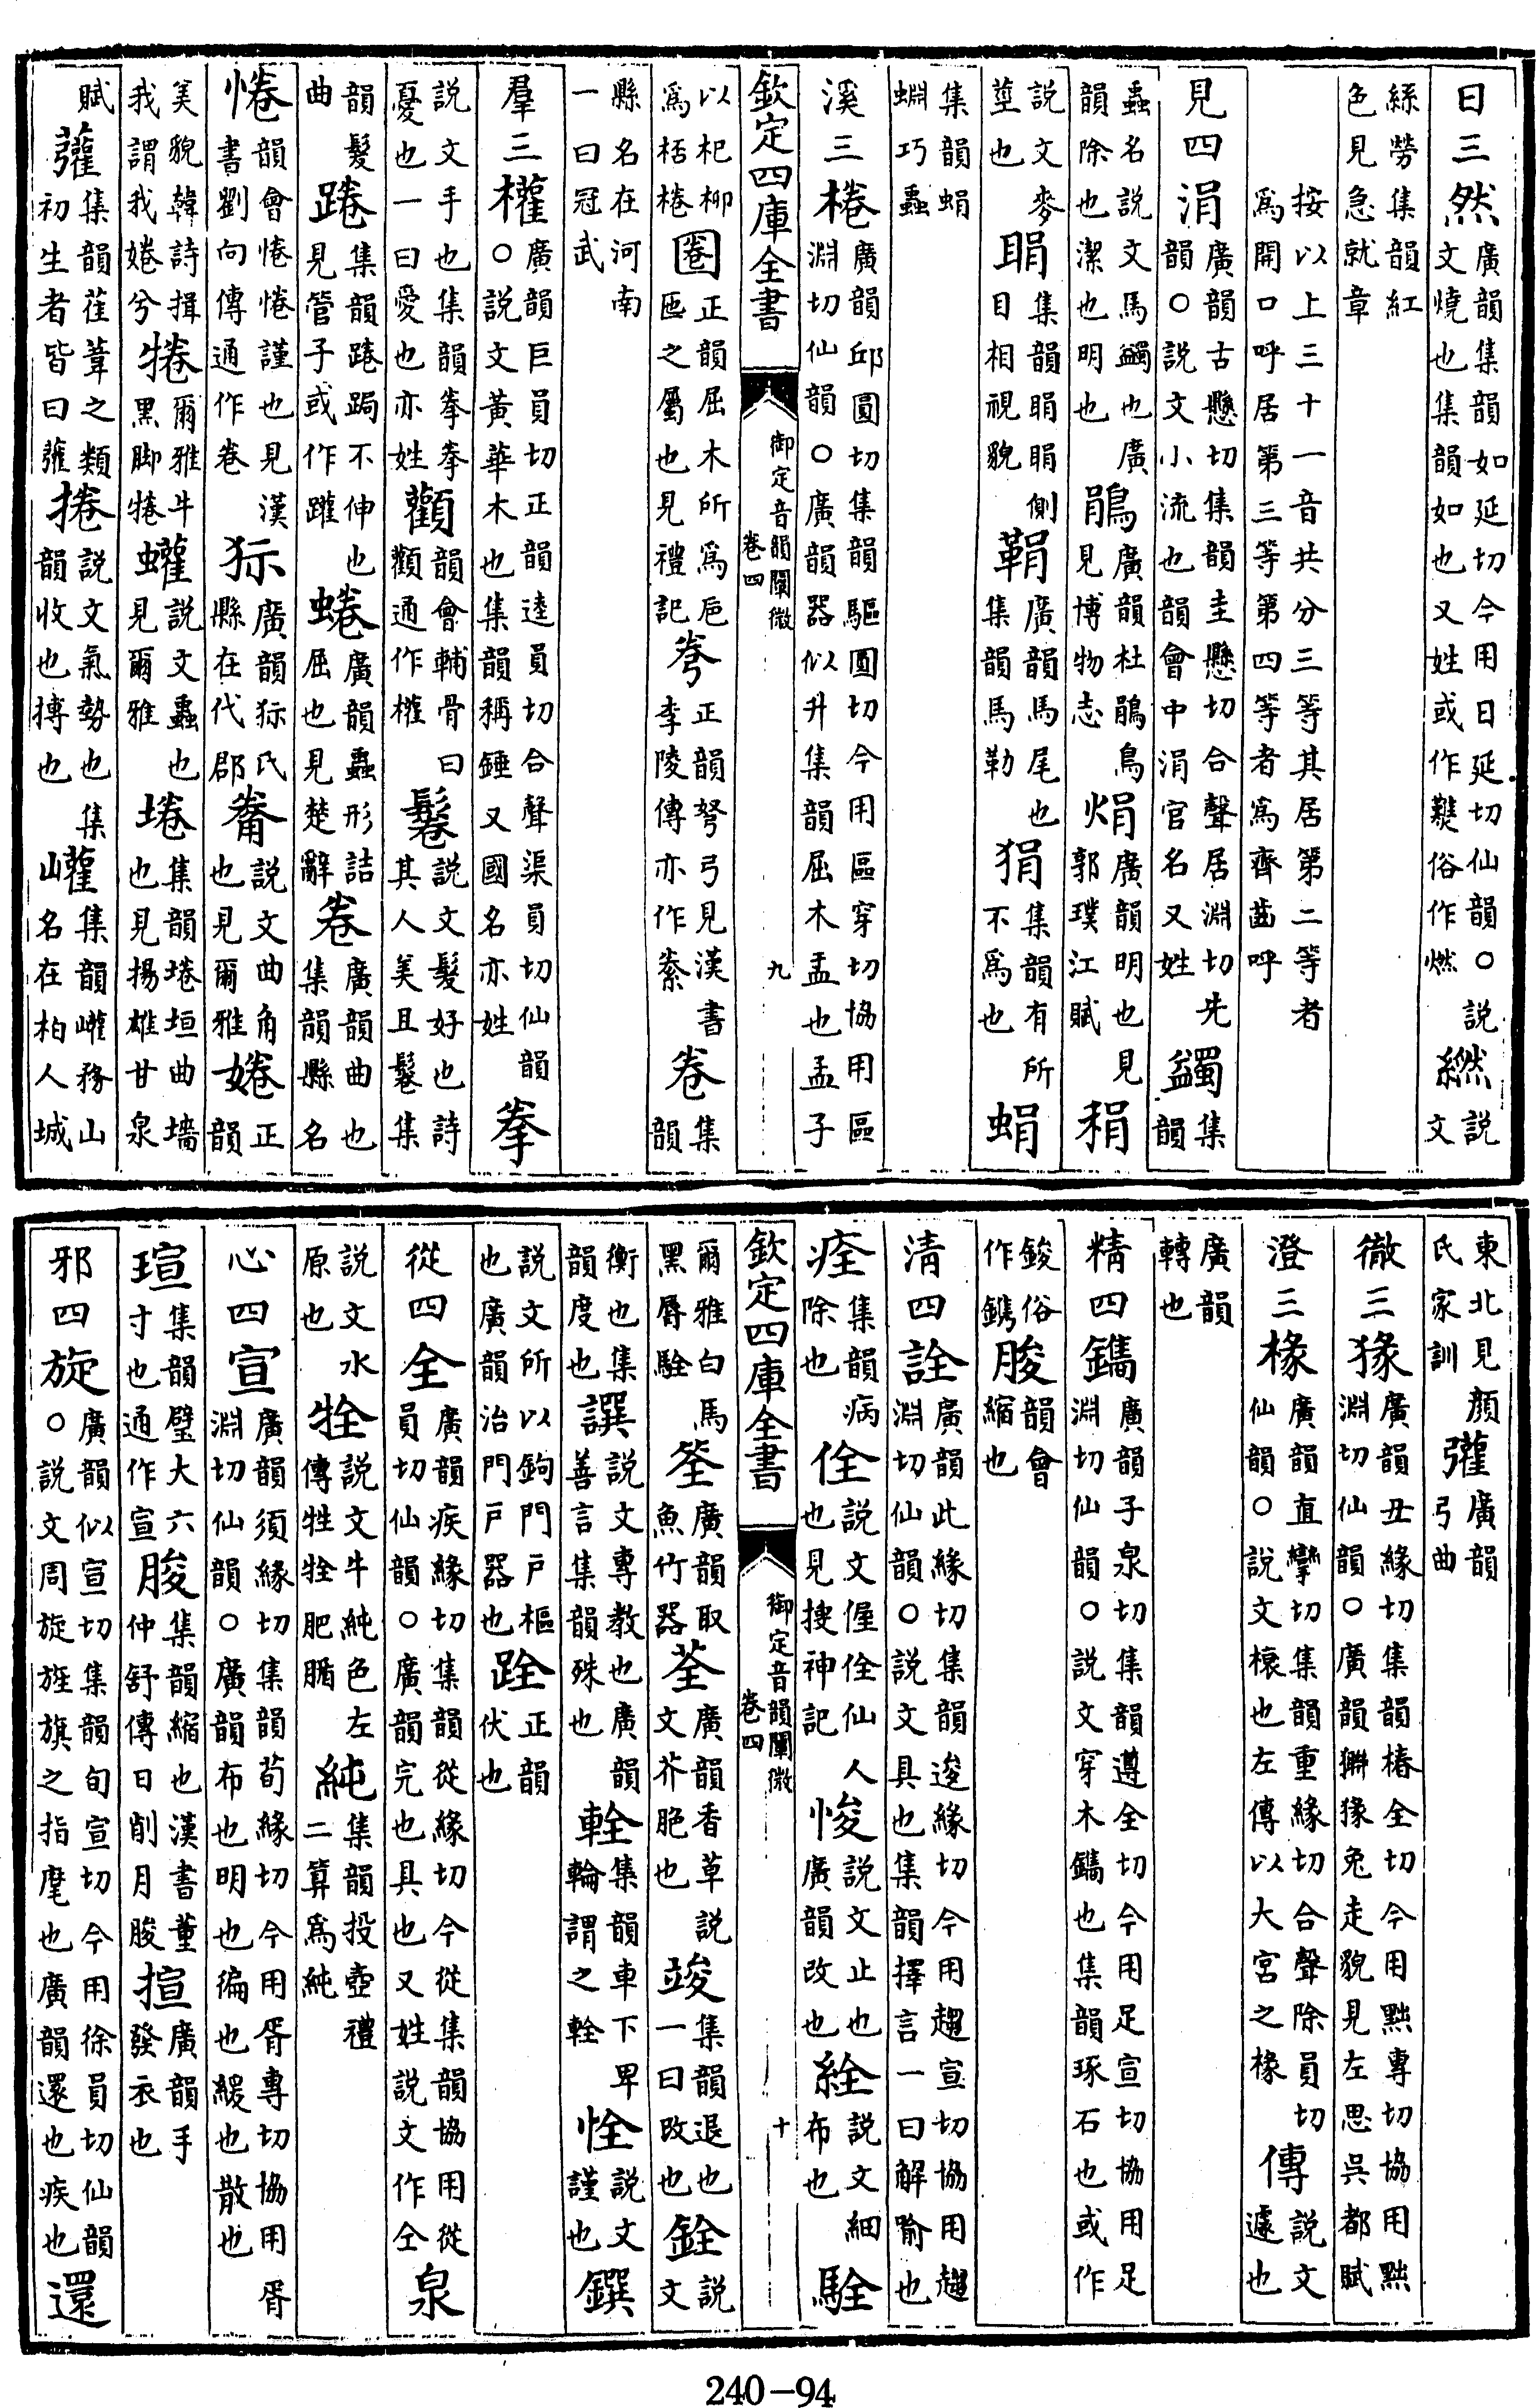 日三然廣韻集韻如延切今用日延切仙韻○說文燒也集韻如也又姓或作㸐俗作燃繎說文
絲勞集韻紅色見急就章
按以上三十一音共分三等其居第二等者爲開口呼居第三等第四等者爲齊齒呼
見四涓廣韻古懸切集韻圭懸切合聲居淵切先韻○說文小流也韻會中涓官名又姓蠲集韻
蟲名說文馬蠲也廣韻除也潔也明也鵑廣韻杜鵑鳥見博物志焆廣韻明也見郭璞江賦稍
說文麥莖也睊集韻睊睊側目相視貌鞙廣韻馬尾也集韻馬勒狷集韻有所不爲也蜎
集韻蜎蜵巧蟲
溪三棬廣韻邱圓切集韻驅圓切今用區穿切協用區淵切仙韻○廣韻器似升集韻屈木盂也孟子
欽定四庫全書 御定音韻闡微 卷四 九
以杞柳爲桮棬圈正韻屈木所爲卮匜之屬也見禮記弮正韻弩弓見漢書李陵傳亦作絭卷集韻
縣名在河南一曰冠武
羣三權廣韻巨員切正韻逵員切合聲渠員切仙韻○說文黃華木也集韻稱錘又國名亦姓拳
說文手也集韻拳拳憂也一曰愛也亦姓顴韻會輔骨曰顴通作權鬈說文髮好也詩其人美且鬈集
韻髮曲踡集韻踡跼不伸也見管子或作躍蜷廣韻蟲形詰屈也見楚辭卷廣韻曲也集韻縣名
惓韻會惓惓謹也見漢書劉向傳通作卷狋廣韻狋氏縣在代郡觠說文曲角也見爾雅婘正韻
美貌韓詩揖我謂我婘兮犈爾雅牛黑脚犈蠸說文蟲也見爾雅埢集韻埢垣曲墻也見揚雄甘泉
賦虇集韻萑葦之類初生者皆曰虇捲說文氣勢也集韻收也摶也巏集韻巏務山名在柏人城
東北見顏氏家訓彏廣韻弓曲
徹三猭廣韻丑緣切集韻椿全切今用黜專切協用黜淵切仙韻○廣韻獑猭兔走貌見左思吳都賦
澄三椽廣韻直攣切集韻重緣切合聲除員切仙韻○說文榱也左傳以大宮之椽傳說文遽也
廣韻轉也
精四鐫廣韻子泉切集韻遵全切今用足宣切協用足淵切仙韻○說文穿木鐫也集韻琢石也或作
鋑俗作鎸朘韻會縮也
清四詮廣韻此緣切集韻逡緣切今用趨宣切協用趨淵切仙韻○說文具也集韻擇言一曰解喻也
痊集韻病除也佺說文偓佺仙人也見搜神記悛說文止也廣韻改也絟說文細布也駩
欽定四庫全書 御定音韻闡微 卷四 十
爾雅白馬黑脣駩筌廣韻取魚竹器荃廣韻香草說文芥脃也竣集韻退也一曰改也銓說文
衡也集韻度也譔說文專教也廣韻善言集韻殊也輇集韻車下卑輪謂之輇恮說文謹也鐉
說文所以鉤門戶樞也廣韻治門戶器也跧正韻伏也
從四全廣韻疾緣切集韻從緣切今從集韻協用從員切仙韻○廣韻完也具也又姓說文作仝泉
說文水原也牷說文牛純色左傳牲牷肥腯純集韻投壺禮二算爲純
心四宣廣韻須緣切集韻荀緣切今用胥專切協用胥淵切仙韻○廣韻布也明也徧也緩也散也
瑄集韻璧大六寸也通作宣朘集韻縮也漢書董仲舒傳日削月朘揎廣韻手發衣也
邪四旋廣韻似宣切集韻旬宣切今用徐員切仙韻○說文周旋旌旗之指麾也廣韻還也疾也還
240-94